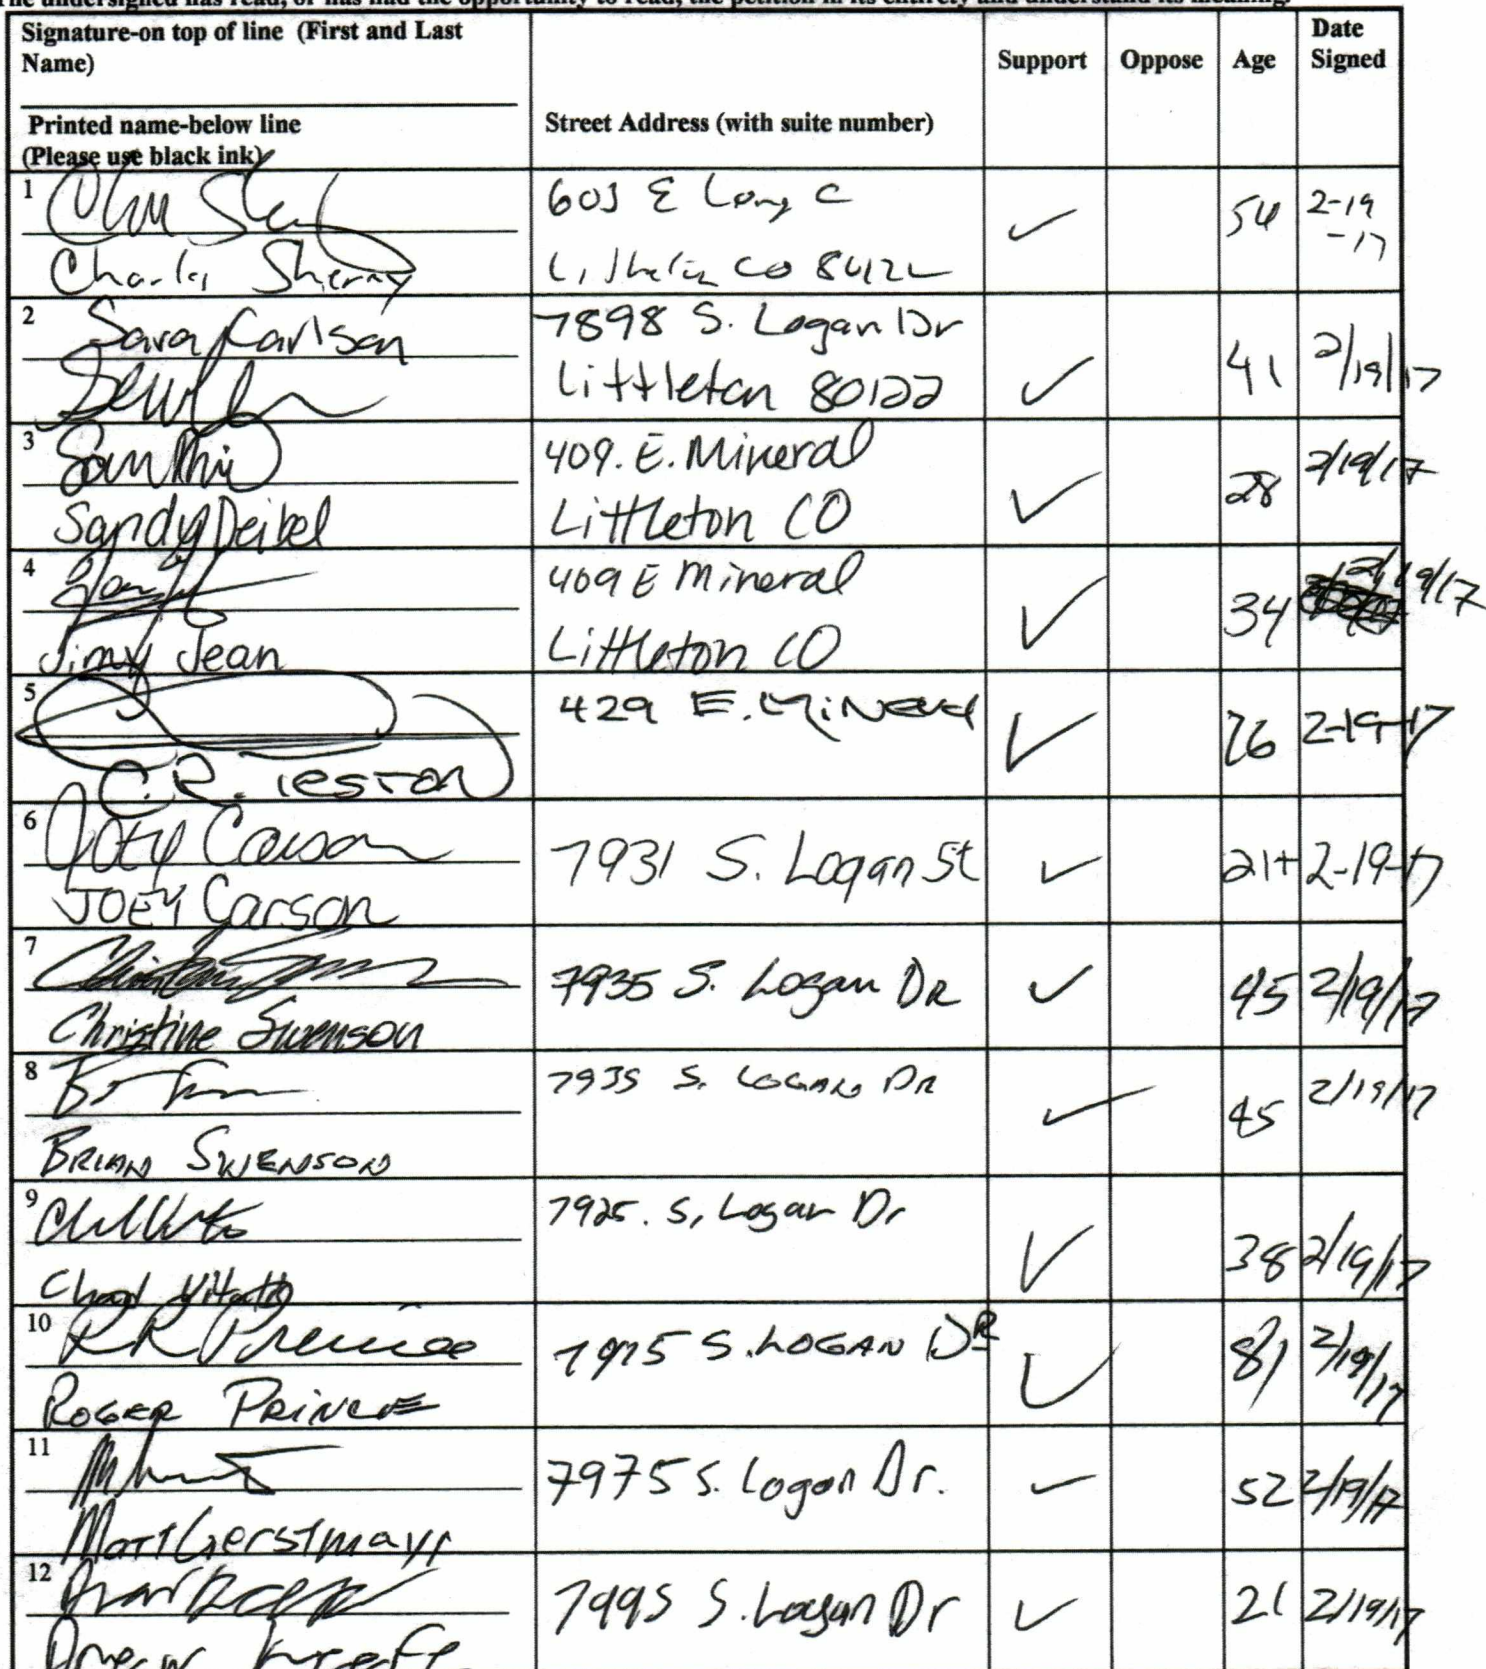 The undersigned has read, or has had the opportunity to read, the petition in its entirety and understand its meaning.
Signature-on top of line (First and Last Name)
Printed name-below line
(Please use black ink)
Street Address (with suite number)
Support
Oppose
Age
Date Signed
1
603 E Long C
CO
54
2-19
-17
2
Sara Karlson
7898 S. Logan Dr
Littleton 80122
41
2/19/17
3
Sandy Deibel
409. E. Mineral
Littleton CO
28
2/19/17
4
Jimy Jean
409 E Mineral
Littleton CO
34
2/19/17
5
C.R. Teston
429 E. Mineral
76
2-19-17
6
Joey Carson
JOEY Carson
7931 S. Logan St
21+
2-19-17
7
Christine Swenson
7935 S. Logan DR
45
2/19/17
8
BRIAN SWENSON
7935 S. LOGAN DR
45
2/19/17
9
Chad
7925. S, Logan Dr
38
2/19/17
10
RR Prince
ROGER PRINCE
S. LOGAN DR
81
2/19/17
11
Matt Gerstmayr
7975 S. Logan Dr.
52
2/19/17
12
7995 S. Logan Dr
21
2/19/17